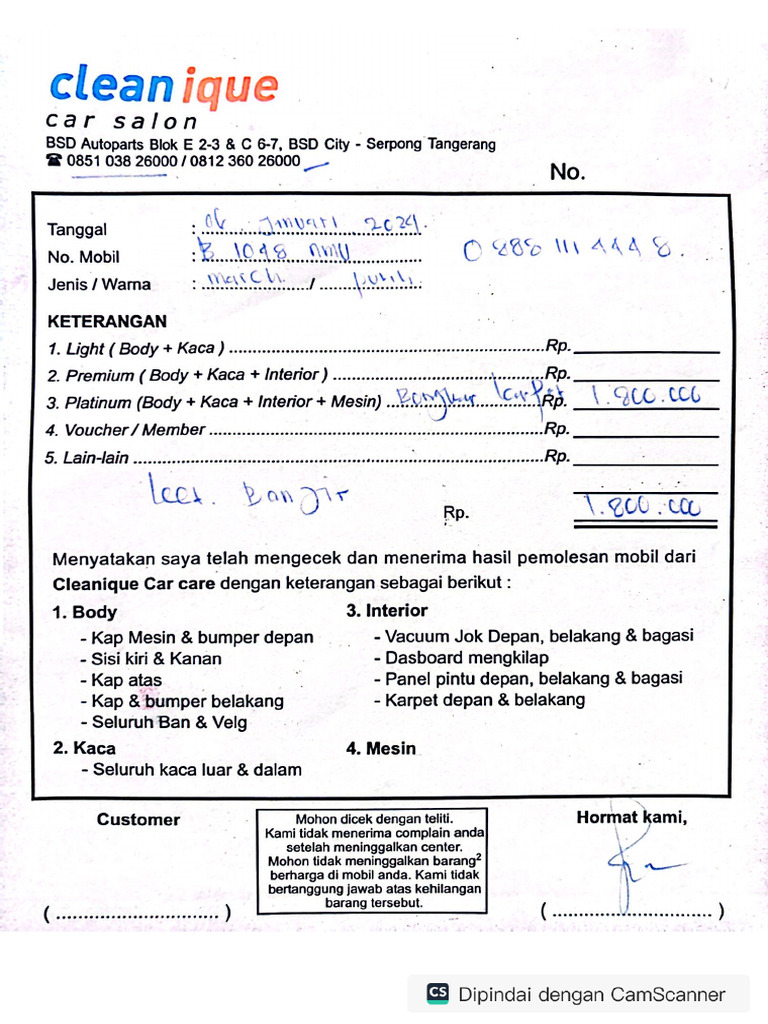 cleanique
car salon
BSD Autoparts Blok E 2-3 & C 6-7, BSD City - Serpong Tangerang
☎ 0851 038 26000 / 0812 360 26000
No.
Tanggal : 06 Januari 2024.
No. Mobil : B 1048 NMU 0888 111 4448.
Jenis / Warna : march / putih
KETERANGAN
1. Light ( Body + Kaca ) Rp.
2. Premium ( Body + Kaca + Interior ) Rp.
3. Platinum (Body + Kaca + Interior + Mesin) Bongkar karpet Rp. 1.800.000
4. Voucher / Member Rp.
5. Lain-lain Rp.
Banjir
Rp. 1.800.000
Menyatakan saya telah mengecek dan menerima hasil pemolesan mobil dari
Cleanique Car care dengan keterangan sebagai berikut :
1. Body
- Kap Mesin & bumper depan
- Sisi kiri & Kanan
- Kap atas
- Kap & bumper belakang
- Seluruh Ban & Velg
2. Kaca
- Seluruh kaca luar & dalam
3. Interior
- Vacuum Jok Depan, belakang & bagasi
- Dasboard mengkilap
- Panel pintu depan, belakang & bagasi
- Karpet depan & belakang
4. Mesin
Customer
(..............................)
Mohon dicek dengan teliti.
Kami tidak menerima complain anda
setelah meninggalkan center.
Mohon tidak meninggalkan barang²
berharga di mobil anda. Kami tidak
bertanggung jawab atas kehilangan
barang tersebut.
Hormat kami,
(..............................)
CS Dipindai dengan CamScanner